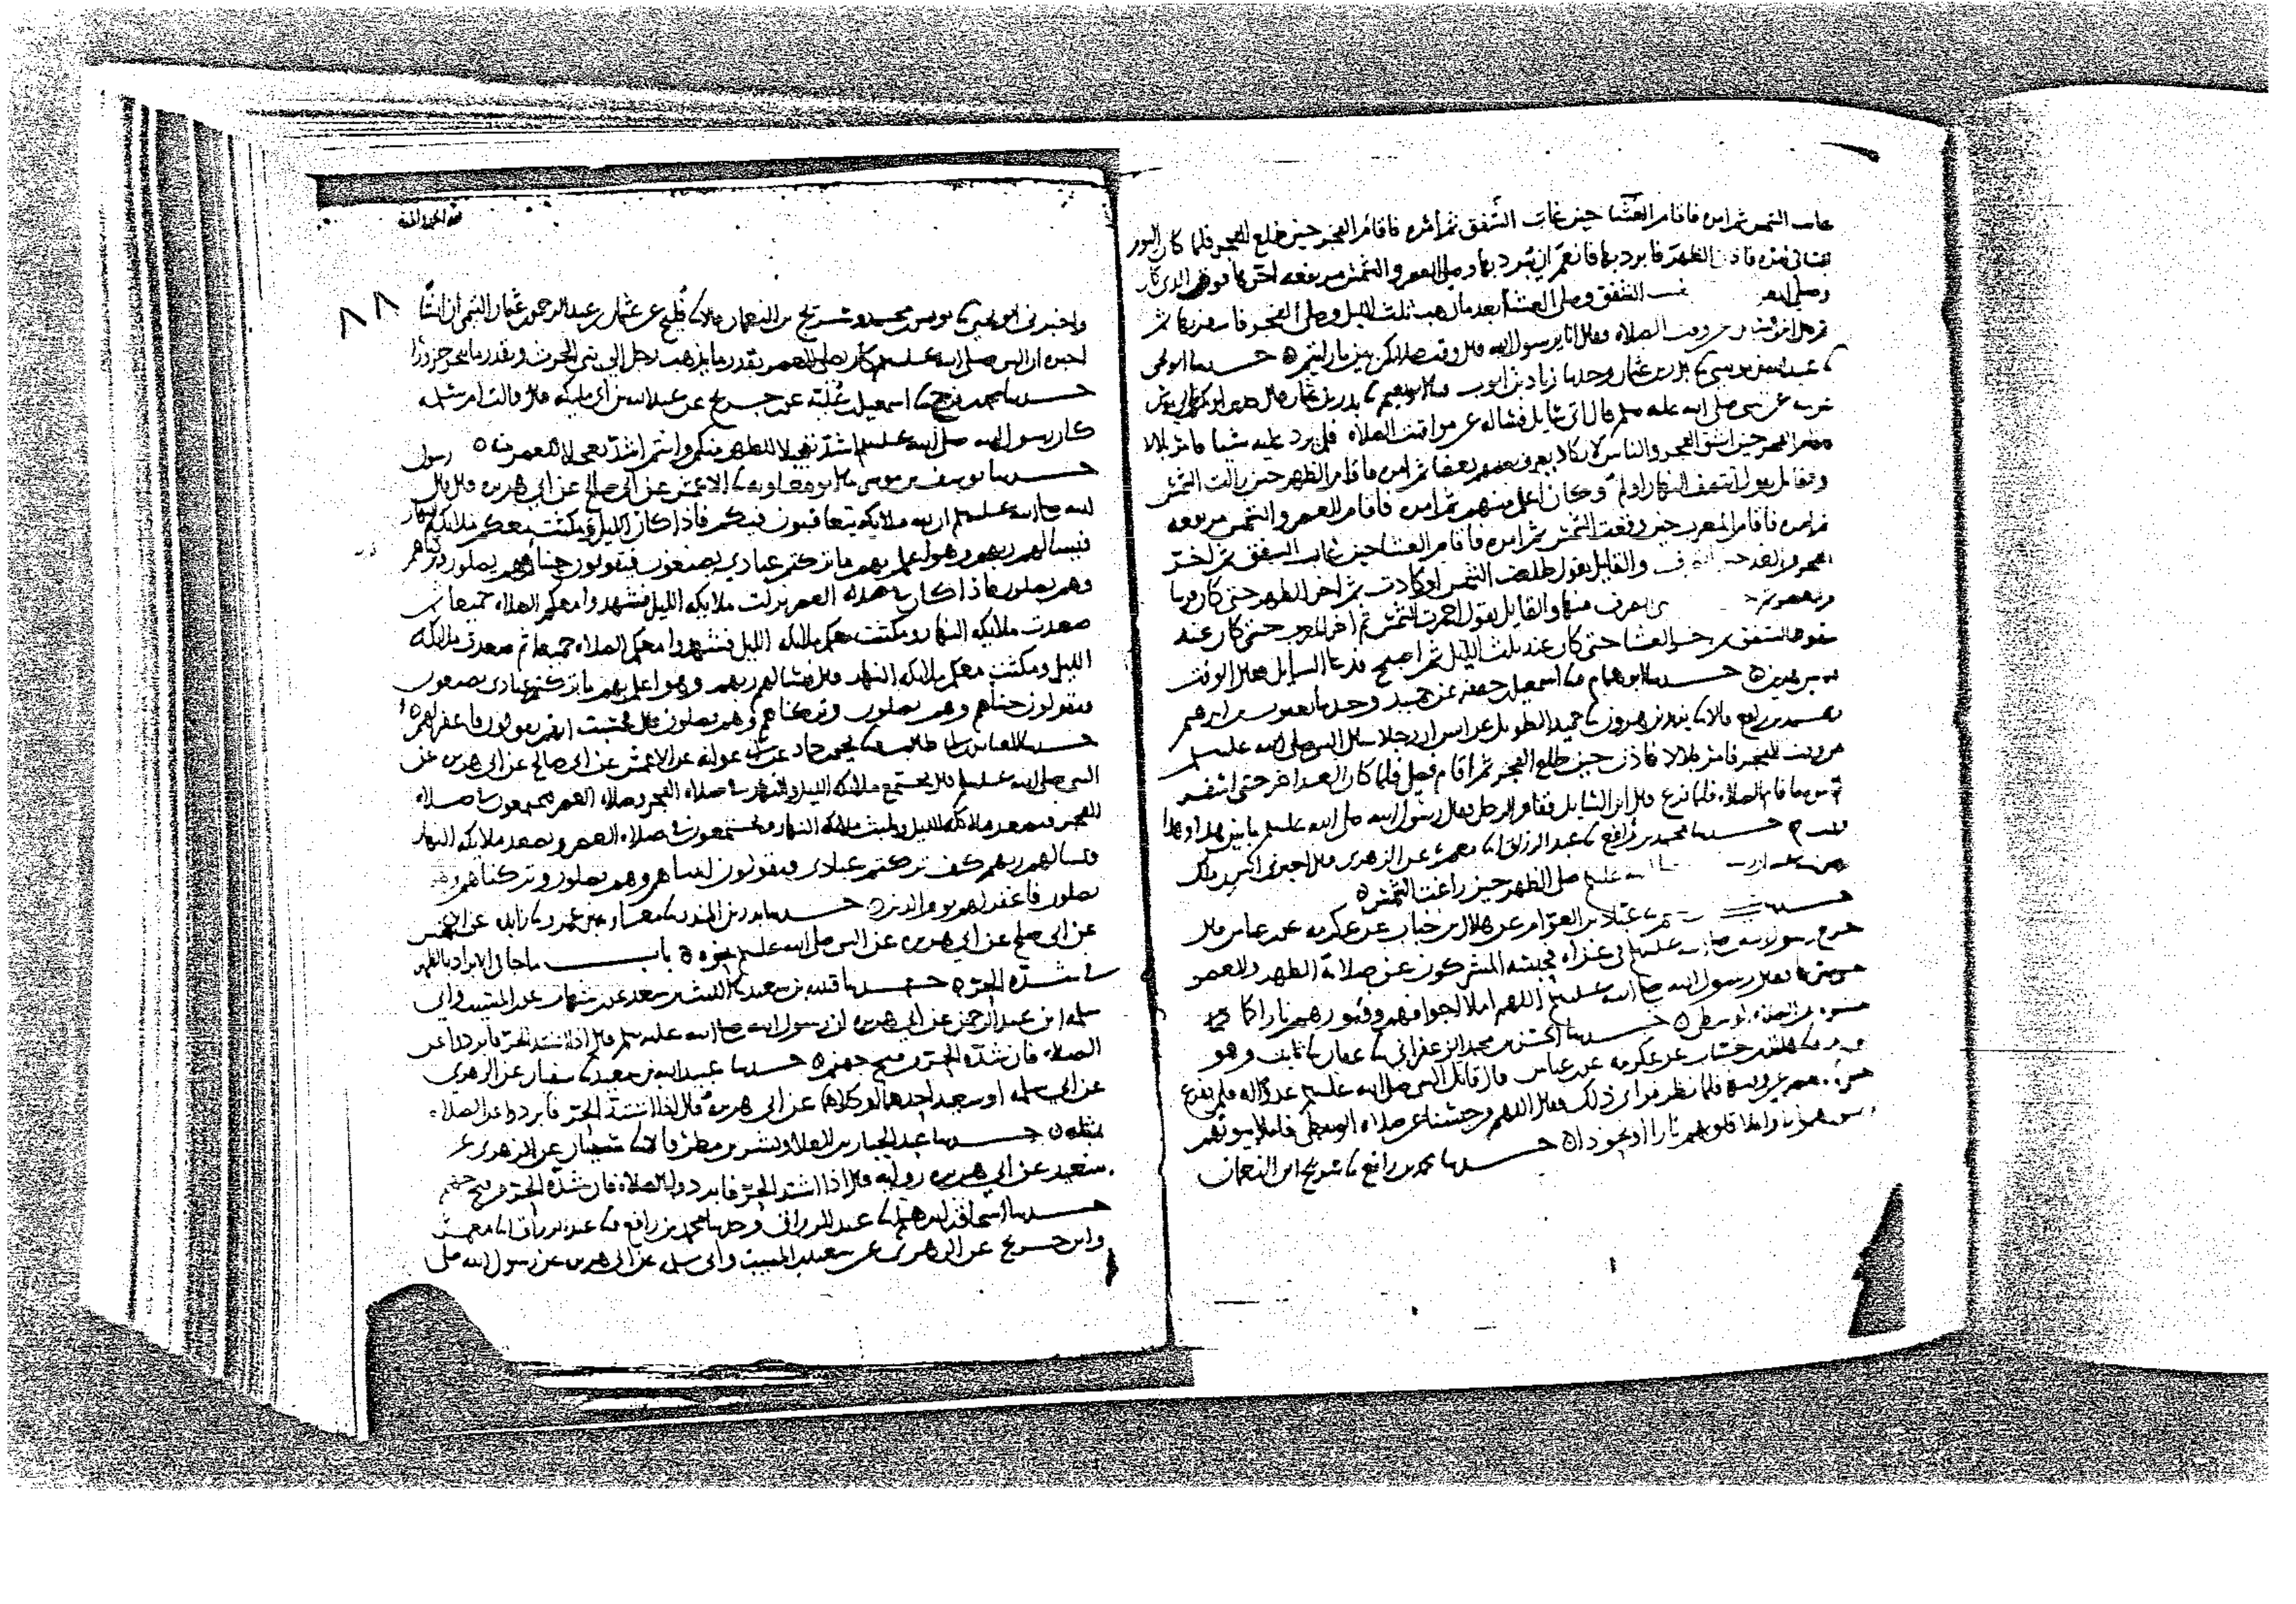 غاب الشمس ثم امره فاقام العشا حين غاب الشفق ثم امره فاقام الفجر حين طلع الفجر فلما كان اليوم
الثانى امره فاذن الظهر فابرد بها فانعم ان يبرد بها وصلى العصر والشمس مرتفعه اخرها فوق الذى كان
وصلى المغرب الشفق وصلى العشا بعد ما ذهب ثلث الليل وصلى الفجر فاسفر بها ثم
قال اين السايل عن وقت الصلاه فقال انا يرسول الله قال وقت صلاتكم بين ما رايتم حدثنا ابو
عبيد الله بن موسى نا بدر بن عثمان وحدثنا زياد بن ايوب نا ابو نعيم نا بدر بن عثمان قال حدثنى ابو بكر بن ابى موسى
عن النبى صلى الله عليه وسلم قال اتى سايل فساله عن مواقيت الصلاه فلم يرد عليه شيا فامر بلالا
فاقام الفجر حين انشق الفجر والناس لا يكاد يعرف بعضهم بعضا ثم امره فاقام الظهر حين زالت الشمس
والقايل يقول انتصف النهار اولم وكان اعلم منهم ثم امره فاقام العصر والشمس مرتفعه
ثم امره فاقام المغرب حين وقعت الشمس ثم امره فاقام العشا حين غاب الشفق ثم اخر
الفجر من الغد حتى انصرف والقايل يقول طلعت الشمس او كادت ثم اخر الظهر حتى كان قريبا
والعصر انصرف منها والقايل يقول احمرت الشمس ثم اخر المغرب حتى كان عند
سقوط الشفق ثم اخر العشا حتى كان عند ثلث الليل ثم اصبح فدعا السايل فقال الوقت
بين هذين حدثنا ابو همام نا اسمعيل بن جعفر عن حميد وحدثنا يعقوب بن ابرهيم
ومحمد بن رافع قالا نا يزيد بن هرون نا حميد الطويل عن انس ان رجلا سال النبى صلى الله عليه وسلم
عن وقت الفجر فامر بلالا فاذن حين طلع الفجر ثم اقام فصلى فلما كان الغد اخر حتى اسفر
ثم امره فاقام الصلاه فلما فرغ قال اين السايل فقام الرجل فقال رسول الله صلى الله عليه وسلم ما بين هذا وهذا
وقت حدثنا محمد بن رافع نا عبد الرزاق انا معمر عن الزهرى قال اخبرنى انس بن ملك
ان رسول الله صلى الله عليه وسلم صلى الظهر حين زاغت الشمس
حدثنا عباد بن العوام عن هلال بن خباب عن عكرمه عن ابن عباس قال
خرج رسول الله صلى الله عليه وسلم فى غزاه فحبسه المشركون عن صلاة الظهر والعصر
فقال رسول الله صلى الله عليه وسلم اللهم املا اجوافهم وقبورهم نارا كما
الصلاه الوسطى حدثنا الحسن بن محمد الزعفرانى نا عفان نا ثابت وهو
نا هلال بن خباب عن عكرمه عن ابن عباس قال قاتل النبى صلى الله عليه وسلم عدوا له فلم يفرغ
فلما نظر فراى ذلك فقال اللهم من حبسنا عن صلاه الوسطى فاملا بيوتهم
نارا واملا قلوبهم نارا او نحو ذا حدثنا محمد بن رافع نا شريح ابن النعمان
٨٨
واخبرنى ابو يحيى نا يونس بن محمد وشريح بن النعمان قالا نا فليح عن عثمان بن عبد الرحمن بن عثمان التيمى ان انسا
اخبره ان النبى صلى الله عليه وسلم كان يصلى العصر بقدر ما يذهب رجل الى بنى الحرث وبقدر ما ينحر جزورا
حدثنا محمد بن يحيى نا اسمعيل بن علية عن ابن جريج عن عبد الله بن ابى مليكه قال قالت ام سلمه
كان رسول الله صلى الله عليه وسلم اشد تعجيلا للظهر منكم وانتم اشد تعجيلا للعصر منه
حدثنا يوسف بن موسى نا ابو معاويه نا الاعمش عن ابى صالح عن ابى هريره قال قال رسول
الله صلى الله عليه وسلم ان لله ملايكه يتعاقبون فيكم فاذا كان الليل ومكثت معكم ملايكه النهار
فيسالهم ربهم وهو اعلم بهم ما تركتم عبادى يصنعون فيقولون جيناهم وهم يصلون وتركناهم
وهم يصلون فاذا كان صلاه العصر نزلت ملايكه الليل فشهدوا معكم الصلاه جميعا ثم
صعدت ملايكه النهار ومكثت معكم ملايكه الليل فشهدوا معكم الصلاه جميعا ثم صعدت ملايكه
الليل ومكثت معكم ملايكه النهار قال فيسالهم ربهم وهو اعلم بهم ما تركتم عبادى يصنعون
فيقولون جيناهم وهم يصلون وتركناهم وهم يصلون قال فحسبت انهم يقولون فاغفر لهم
حدثنا العباس بن ابى طالب نا يحيى بن حماد عن ابى عوانه عن الاعمش عن ابى صالح عن ابى هريره عن
النبى صلى الله عليه وسلم قال يجتمع ملايكه الليل والنهار فى صلاه الفجر وصلاه العصر فيجتمعون فى صلاه
الفجر فتصعد ملايكه الليل وتلبث ملايكه النهار ويجتمعون فى صلاه العصر وتصعد ملايكه النهار
فيسالهم ربهم كيف تركتم عبادى فيقولون اتيناهم وهم يصلون وتركناهم وهم
يصلون فاغفر لهم يوم الدين حدثنا بدر بن المنذر نا معاويه بن عمرو نا زايده عن الاعمش
عن ابى صالح عن ابى هريره عن النبى صلى الله عليه وسلم بنحوه باب ما جا فى الابراد بالظهر
فى شدة الحر حدثنا قتيبه بن سعيد نا الليث بن سعد عن ابن شهاب عن ابن المسيب وابى
سلمه ابن عبد الرحمن عن ابى هريره ان رسول الله صلى الله عليه وسلم قال اذا اشتد الحر فابردوا عن
الصلاه فان شدة الحر من فيح جهنم حدثنا عبيد الله بن سعيد نا سفيان عن الزهرى
عن ابى سلمه او سعيد احدهما او كلاهما عن ابى هريره قال اذا اشتد الحر فابردوا عن الصلاه
بمثله حدثنا عبد الجبار بن العلا وبشر بن مطر قالا نا سفيان عن الزهرى عن
سعيد عن ابى هريره روايه قال اذا اشتد الحر فابردوا بالصلاه فان شدة الحر من فيح جهنم
حدثنا اسحاق بن ابرهيم نا عبد الرزاق وحدثنا محمد بن رافع نا عبد الرزاق انا معمر
وابن جريج عن الزهرى عن سعيد بن المسيب وابى سلمه عن ابى هريره عن رسول الله صلى